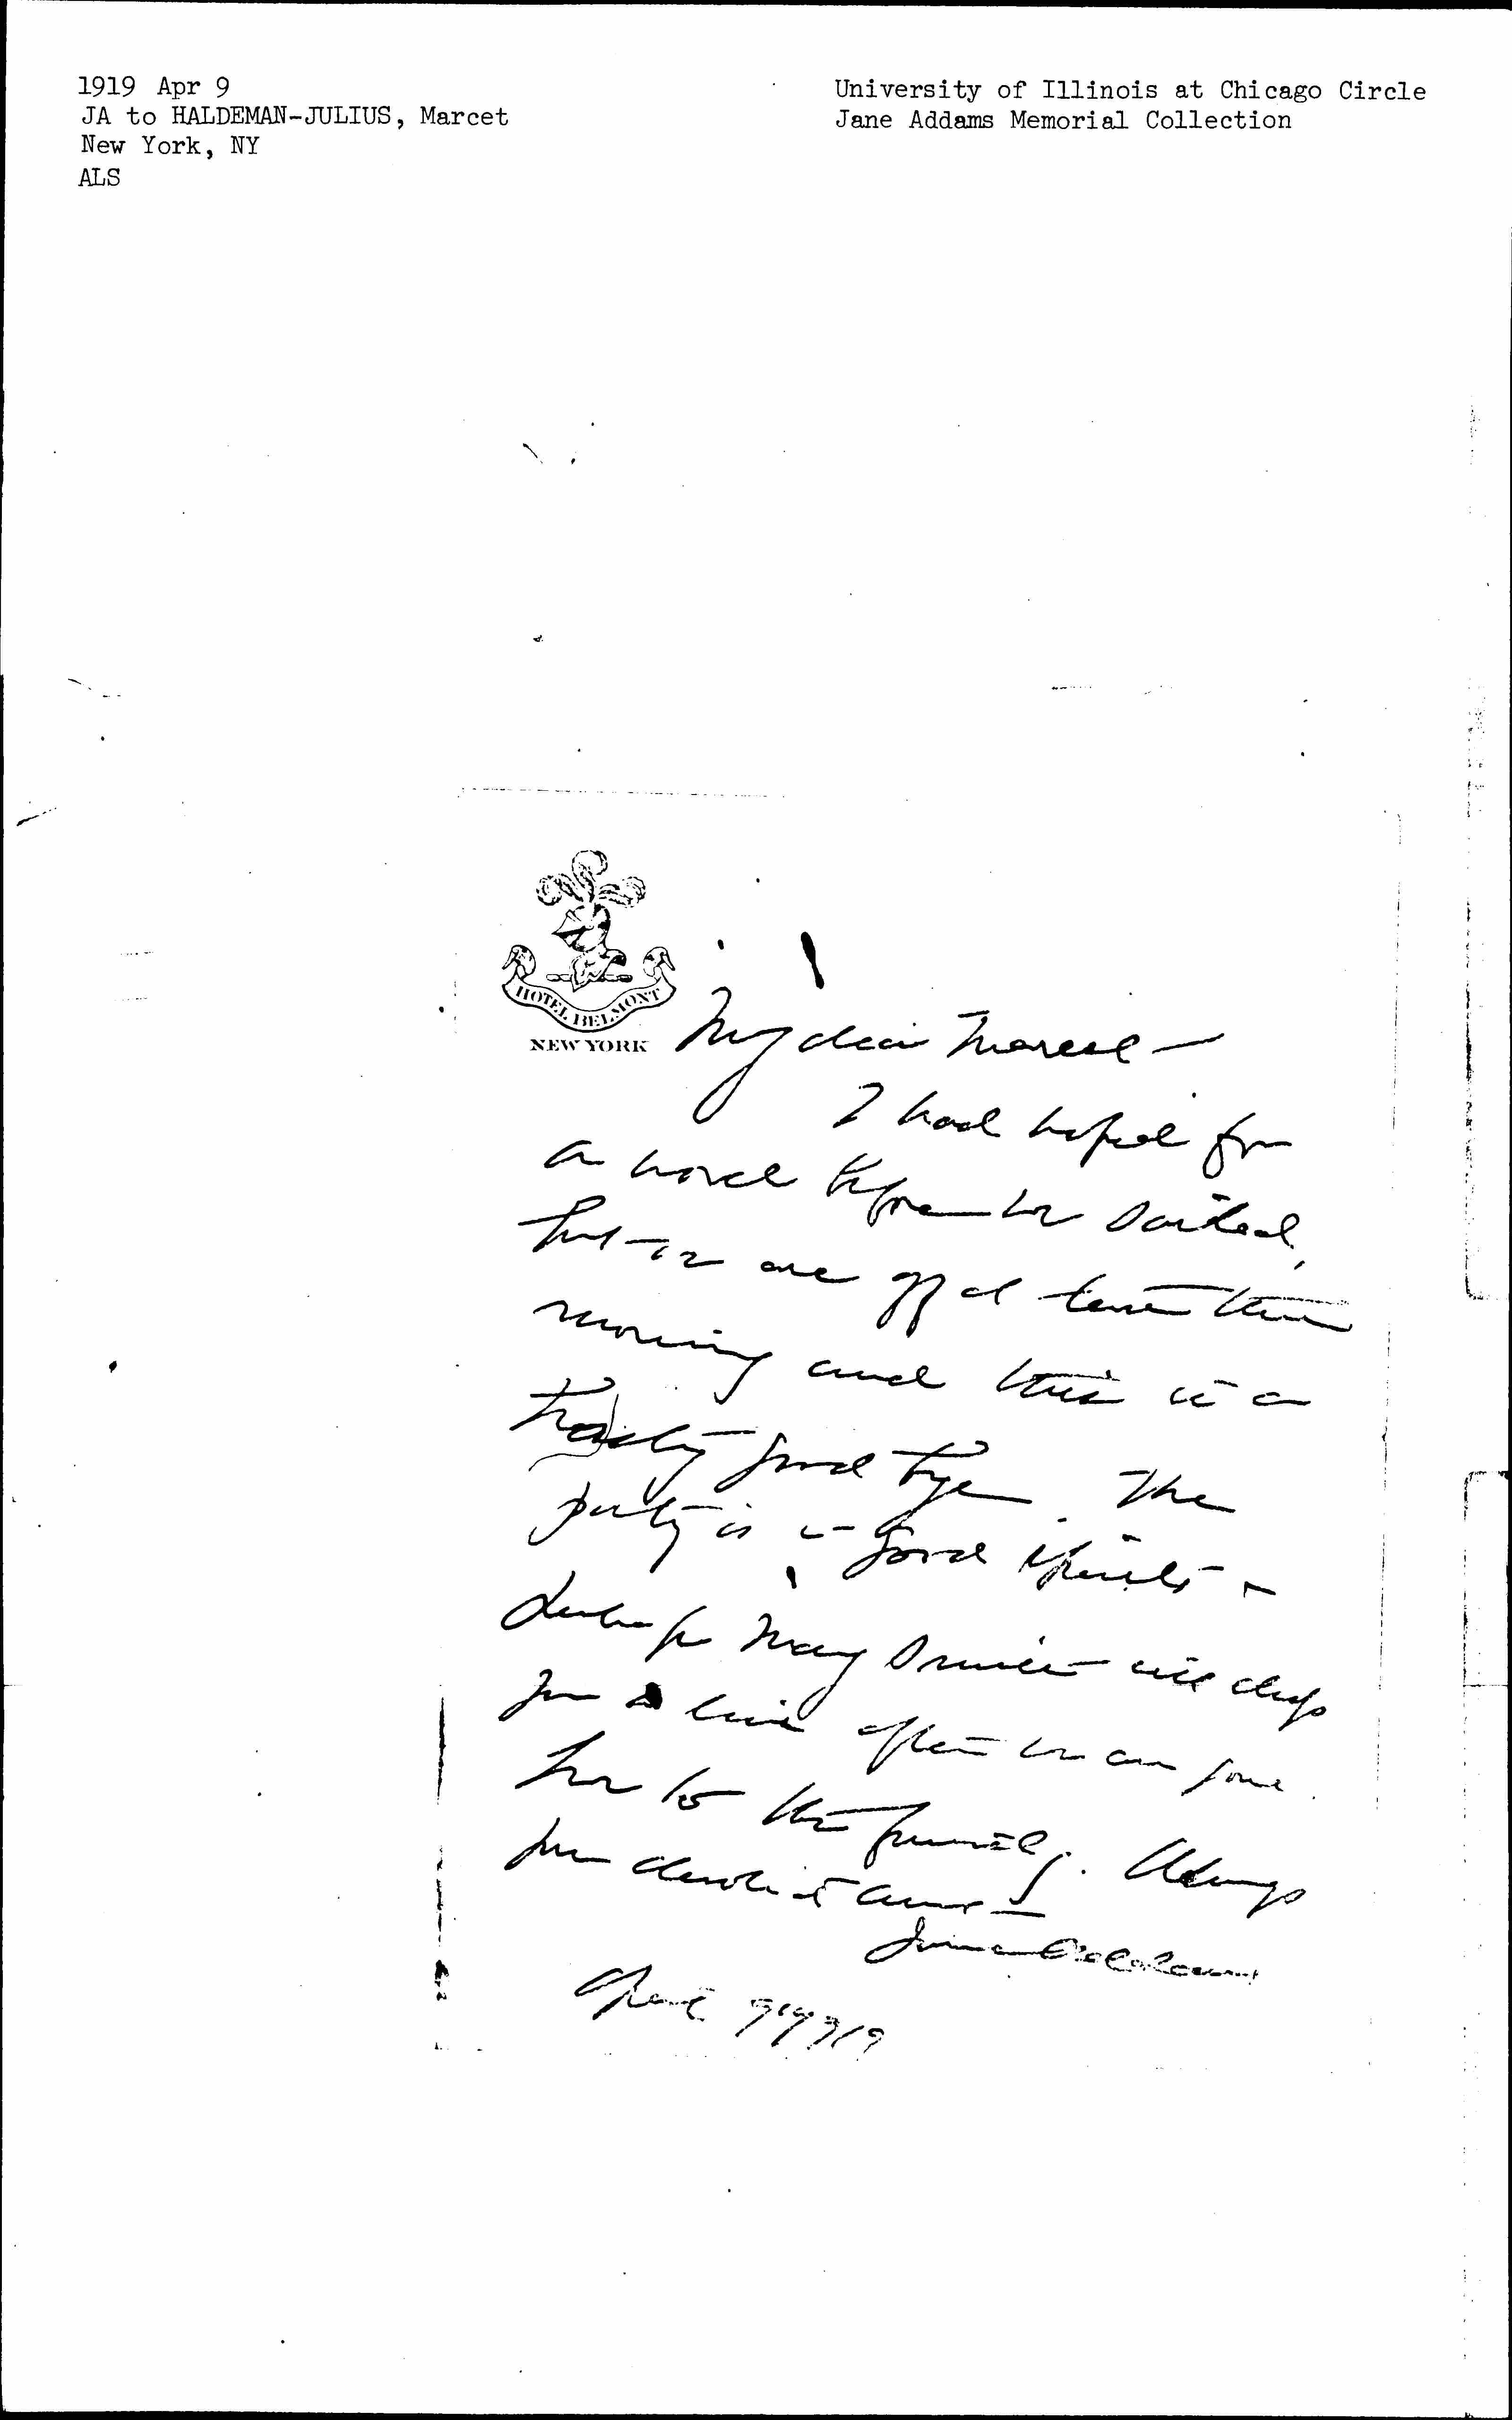 1919 Apr 9
JA to HALDEMAN-JULIUS, Marcet
New York, NY
ALS
University of Illinois at Chicago Circle
Jane Addams Memorial Collection
HOTEL BELMONT
NEW YORK
My dear Marcet —
I had hoped for
a word before we sailed,
but we are off at ten this
morning and this is a
hasty good bye. The
party is in good spirits &
perhaps Mary Smith will drop
you a line after we are gone.
Love to the family. Always
your devoted aunt —
Jane Addams
April 9" 1919